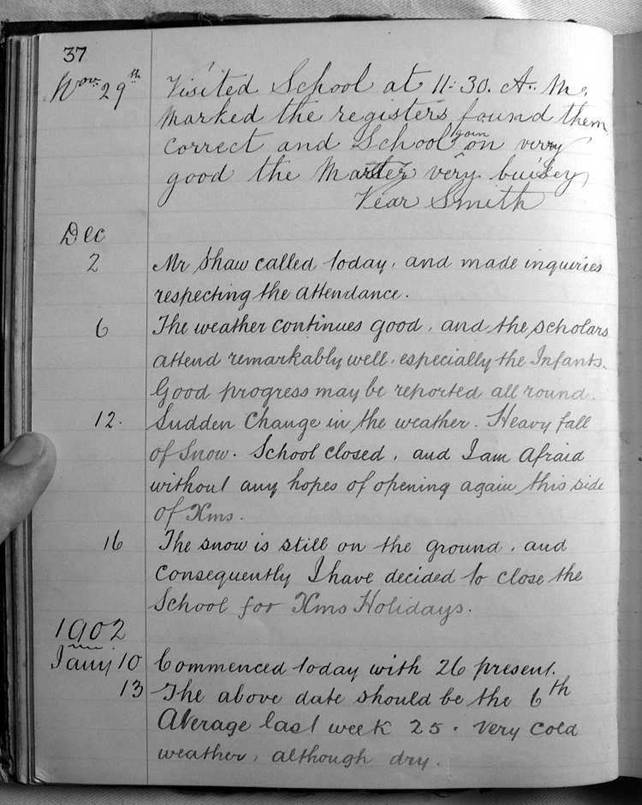 37
Nov. 29th Visited School at 11-30. A. M.
Marked the registers found them
correct and School goin on verry
good the Master very buisey
Vear Smith
Dec
2 Mr Shaw called today, and made inquiries
respecting the attendance.
6 The weather continues good, and the scholars
attend remarkably well, especially the Infants.
Good progress may be reported all round.
12. Sudden Change in the weather. Heavy fall
of Snow. School closed, and I am Afraid
without any hopes of opening again this side
of Xms.
16 The snow is still on the ground, and
Consequently I have decided to close the
School for Xms Holidays.
1902
Jany 10 Commenced today with 26 present.
13 The above date should be the 6th
Average last week 25. Very Cold
weather, although dry.